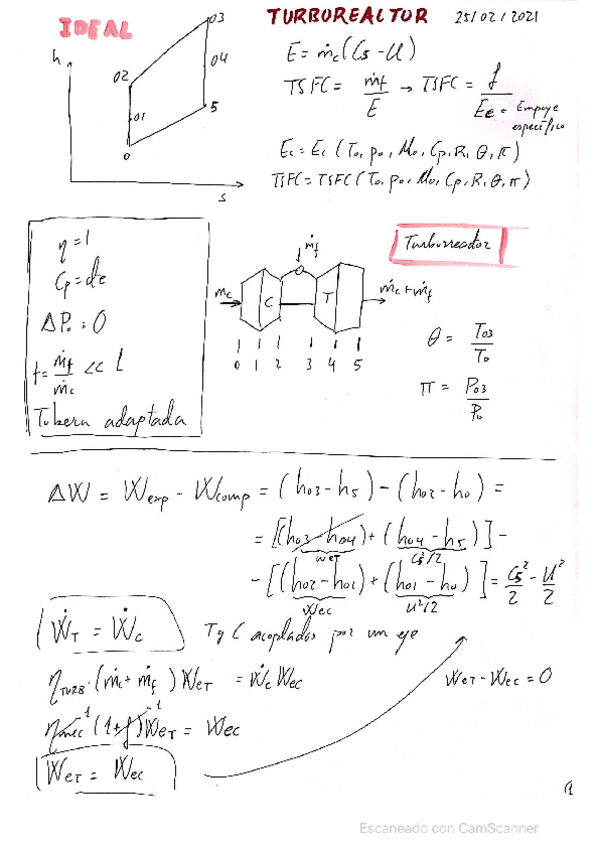 IDEAL
TURBOREACTOR 25/02/2021
h
03
02
04
01
5
0
s
E = ṁc(C5 - U)
TSFC = ṁf/E → TSFC = f/Ee = Empuje específico
Ec = Ec (To, po, Mo, Cp, R, θ, π)
TSFC = TSFC (To, po, Mo, Cp, R, θ, π)
η = 1
Cp = cte
ΔPo = 0
f = ṁf/ṁc << 1
Tobera adaptada
ṁf
ṁc
C
T
ṁc+ṁf
0 1 2 3 4 5
Turborreactor
θ = T03/To
π = P03/Po
ΔW = Wexp - Wcomp = (h03 - h5) - (h02 - h0) =
= [(h03 - h04) + (h04 - h5)] -
WeT C5²/2
- [(h02 - h01) + (h01 - h0)] = C5²/2 - U²/2
Wec U²/2
ẆT = Ẇc T y C acoplados por un eje
ηTURB · (ṁc + ṁf) WeT = ṁc Wec WeT - Wec = 0
ηmec 1 (1+f) 1 WeT = Wec
WeT = Wec
1
Escaneado con CamScanner